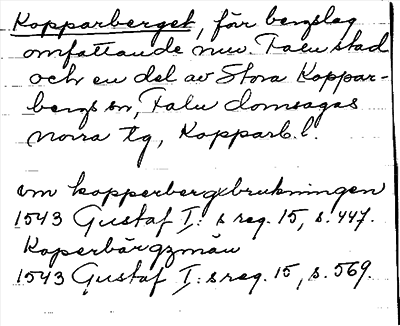 Kopparberget, får bergslag
omfattande nuv. Falu stad
och en del av Stora Koppar-
bergs sn, Falu domsagas
norra tlg, Kopparb. l.
om kopperbergxbrukningen
1543 Gustaf I:s reg. 15, s. 447.
Koperbärgzmän
1543 Gustaf I:s reg. 15, s. 569.